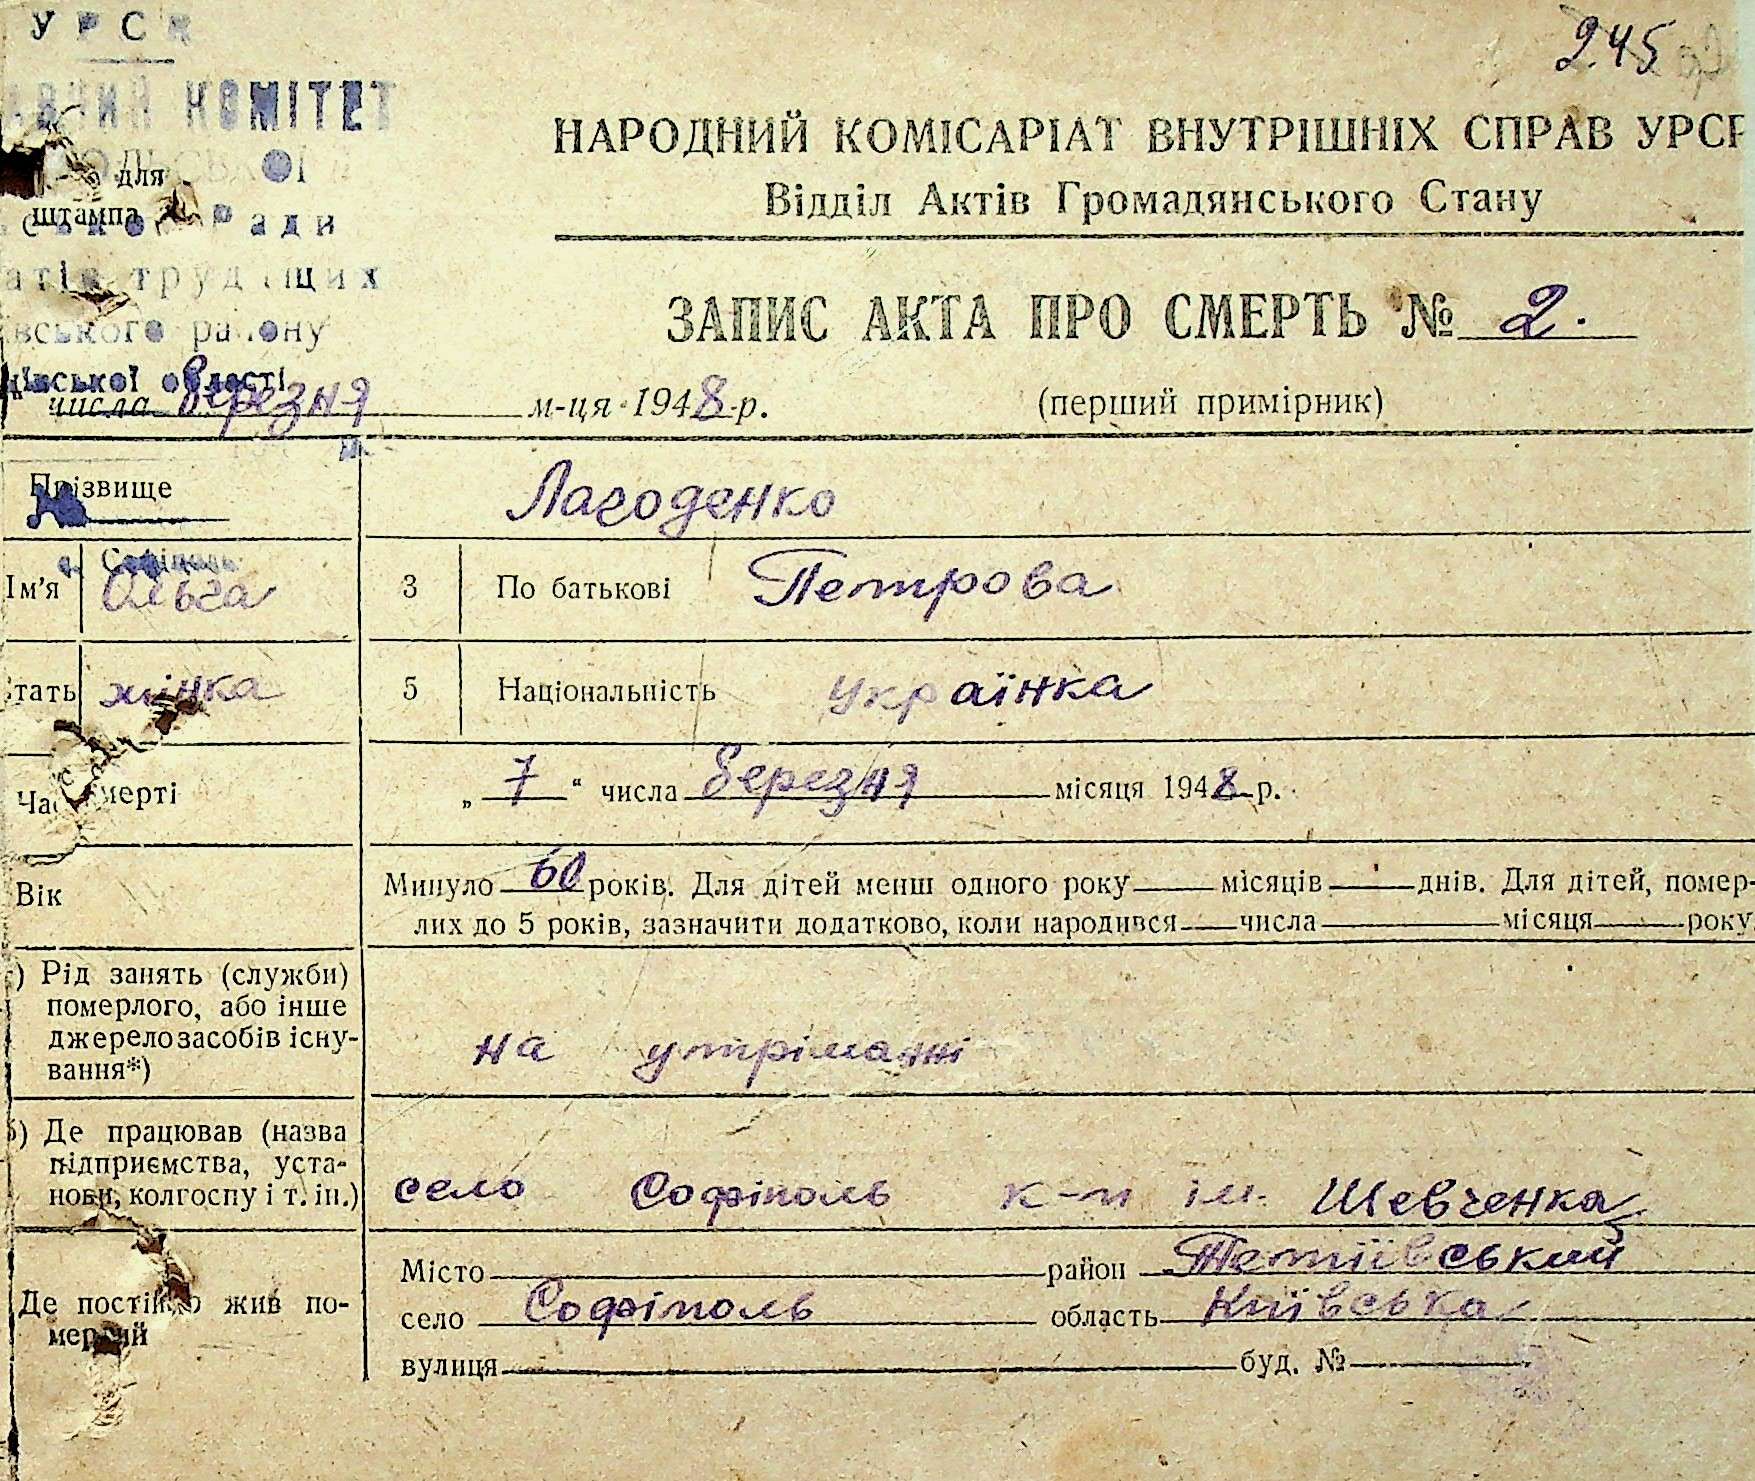 УРСР
245
КОМІТЕТ
НАРОДНИЙ КОМІСАРІАТ ВНУТРІШНІХ СПРАВ УРСР
для
Відділ Актів Громадянського Стану
штампа
Ради
трудящих
ЗАПИС АКТА ПРО СМЕРТЬ № 2.
вського району
ївської області
числа березня м-ця 1948 р. (перший примірник)
Прізвище Лагоденко
с. Софіполь
Ім'я Ольга 3 По батькові Петрова
Стать жінка 5 Національність українка
Час смерті „ 7 “ числа березня місяця 1948 р.
Вік Минуло 60 років. Для дітей менш одного року місяців днів. Для дітей, помер-
лих до 5 років, зазначити додатково, коли народився числа місяця року.
) Рід занять (служби)
померлого, або інше
джерело засобів існу-
вання*)
на утріманні
б) Де працював (назва
підприємства, уста-
нови, колгоспу і т. ін.)
село Софіполь к-п ім. Шевченка
Місто район Тетіївський
Де постійно жив по-
мерлий
село Софіполь область Київська
вулиця буд. №